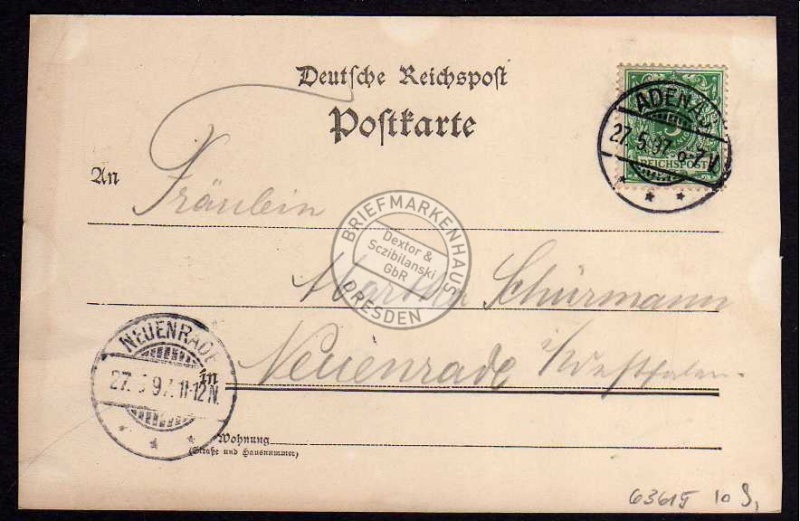 Deutsche Reichspost
Postkarte
ADENAU
27.5.97.6-7.V.
REICHSPOST
An
Fräulein
BRIEFMARKENHAUS
Dextor &
Sczibilanski
GbR
DRESDEN
Martha Schürmann
NEUENRADE
27.5.97.11-12N.
in
Neuenrade i/Westfalen.
Wohnung
(Straße und Hausnummer)
6361 10